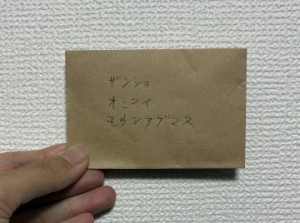 ザンショ
オミマイ
モウシアゲマス